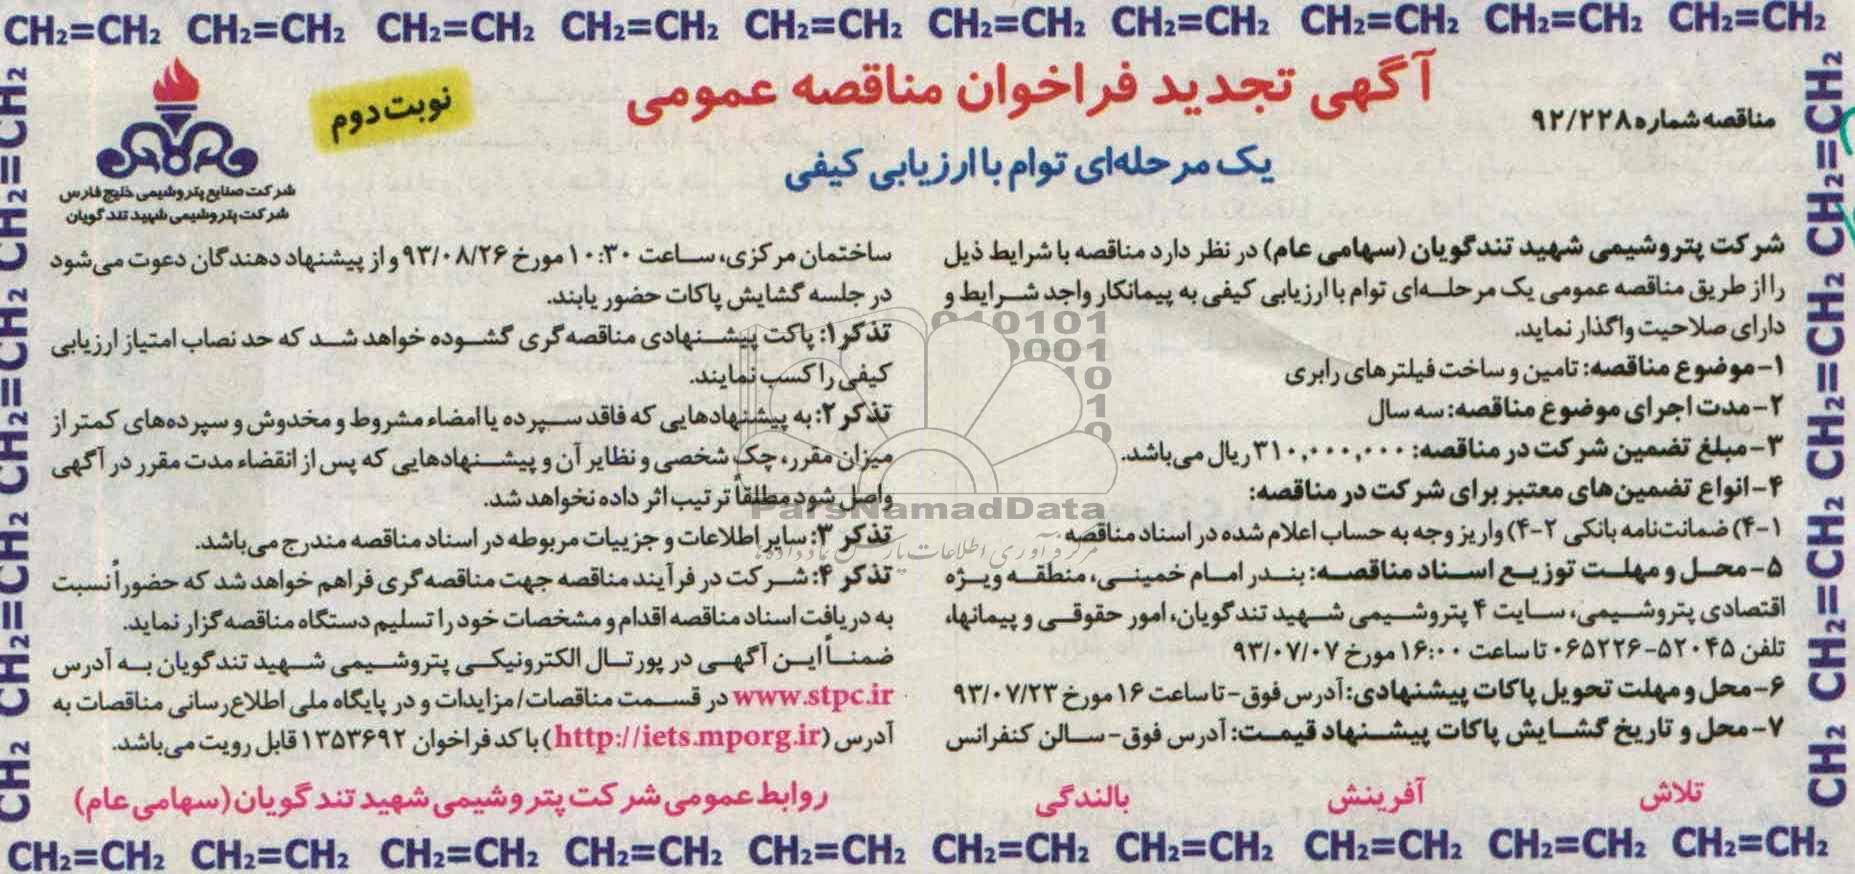 CH₂=CH₂ CH₂=CH₂ CH₂=CH₂ CH₂=CH₂ CH₂=CH₂ CH₂=CH₂ CH₂=CH₂ CH₂=CH₂ CH₂=CH₂ CH₂=CH₂
آگهی تجدید فراخوان مناقصه عمومی
مناقصه شماره ۹۲/۲۲۸
نوبت دوم
یک مرحله‌ای توام با ارزیابی کیفی
شرکت صنایع پتروشیمی خلیج فارس
شرکت پتروشیمی شهید تندگویان
شرکت پتروشیمی شهید تندگویان (سهامی عام) در نظر دارد مناقصه با شرایط ذیل
را از طریق مناقصه عمومی یک مرحله‌ای توام با ارزیابی کیفی به پیمانکار واجد شرایط و
دارای صلاحیت واگذار نماید.
۱- موضوع مناقصه: تامین و ساخت فیلترهای رابری
۲- مدت اجرای موضوع مناقصه: سه سال
۳- مبلغ تضمین شرکت در مناقصه: ۳۱۰,۰۰۰,۰۰۰ ریال می‌باشد.
۴- انواع تضمین‌های معتبر برای شرکت در مناقصه:
۴-۱) ضمانت‌نامه بانکی ۴-۲) واریز وجه به حساب اعلام شده در اسناد مناقصه
۵- محل و مهلت توزیع اسناد مناقصه: بندر امام خمینی، منطقه ویژه
اقتصادی پتروشیمی، سایت ۴ پتروشیمی شهید تندگویان، امور حقوقی و پیمانها،
تلفن ۵۲۰۴۵-۰۶۵۲۲۶ تا ساعت ۱۶:۰۰ مورخ ۹۳/۰۷/۰۷
۶- محل و مهلت تحویل پاکات پیشنهادی: آدرس فوق- تا ساعت ۱۶ مورخ ۹۳/۰۷/۲۳
۷- محل و تاریخ گشایش پاکات پیشنهاد قیمت: آدرس فوق- سالن کنفرانس
ساختمان مرکزی، ساعت ۱۰:۳۰ مورخ ۹۳/۰۸/۲۶ و از پیشنهاد دهندگان دعوت می‌شود
در جلسه گشایش پاکات حضور یابند.
تذکر ۱: پاکت پیشنهادی مناقصه‌گری گشوده خواهد شد که حد نصاب امتیاز ارزیابی
کیفی را کسب نمایند.
تذکر ۲: به پیشنهادهایی که فاقد سپرده یا امضاء مشروط و مخدوش و سپرده‌های کمتر از
میزان مقرر، چک شخصی و نظایر آن و پیشنهادهایی که پس از انقضاء مدت مقرر در آگهی
واصل شود مطلقاً ترتیب اثر داده نخواهد شد.
تذکر ۳: سایر اطلاعات و جزییات مربوطه در اسناد مناقصه مندرج می‌باشد.
تذکر ۴: شرکت در فرآیند مناقصه جهت مناقصه‌گری فراهم خواهد شد که حضوراً نسبت
به دریافت اسناد مناقصه اقدام و مشخصات خود را تسلیم دستگاه مناقصه‌گزار نماید.
ضمناً این آگهی در پورتال الکترونیکی پتروشیمی شهید تندگویان به آدرس
www.stpc.ir در قسمت مناقصات/مزایدات و در پایگاه ملی اطلاع‌رسانی مناقصات به
آدرس (http://iets.mporg.ir) با کد فراخوان ۱۳۵۳۶۹۲ قابل رویت می‌باشد.
تلاش آفرینش بالندگی
روابط عمومی شرکت پتروشیمی شهید تندگویان (سهامی عام)
ParsNamadData
مرکز فرآوری اطلاعات پارس نماد داده‌ها
CH₂=CH₂ CH₂=CH₂ CH₂=CH₂ CH₂=CH₂ CH₂=CH₂ CH₂=CH₂ CH₂=CH₂ CH₂=CH₂ CH₂=CH₂ CH₂=CH₂